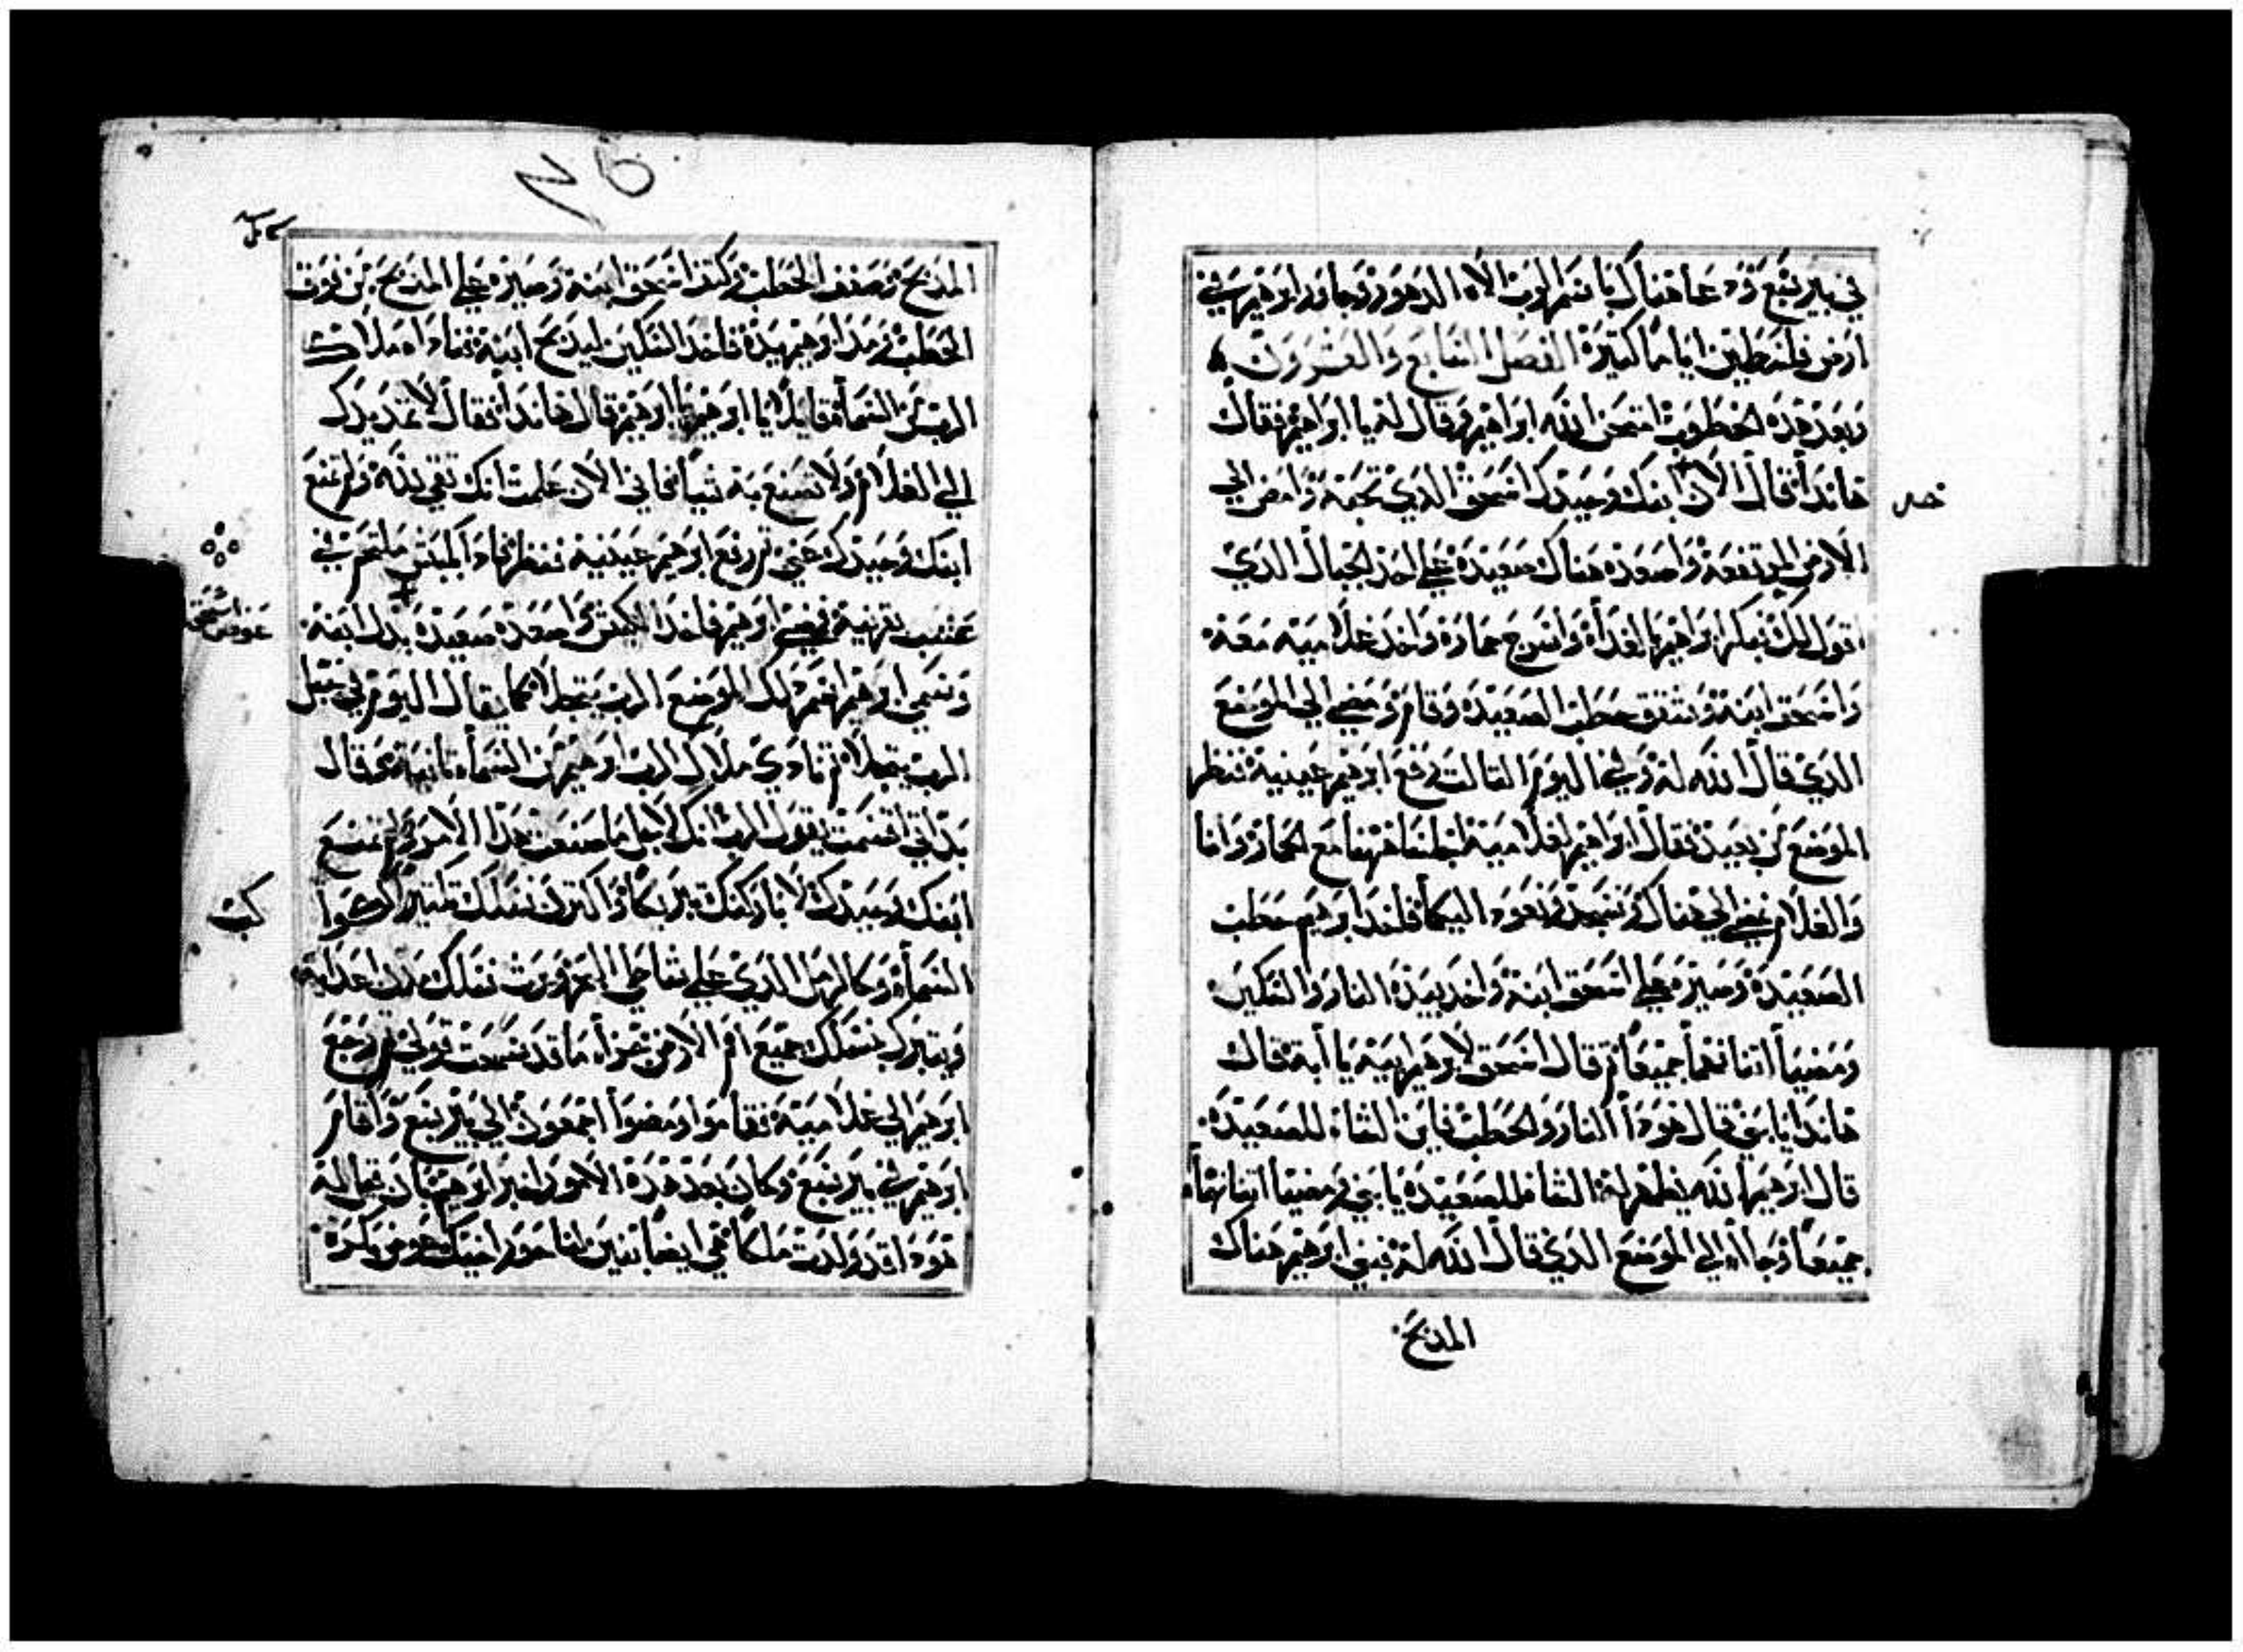 في بير سبع ودعا هناك باسم الرب الاه الدهور وجاور ابرهيم في
ارض فلسطين اياما كتيرة الفصل السابع والعشرون
وبعد هده الخطوب امتحن الله ابراهيم وقال له يا ابراهيم فقال
هاندا قال الان ابنك وحيدك اسحق الدي تحبه وامض الي
الارض المرتفعة واصعده هناك صعيدة علي احد الجبال الدي
اقول لك فبكر ابراهيم الغداة واسرج حماره واخد غلاميه معه
واسحق ابنه وشقق حطب الصعيدة وقام ومضي الي الموضع
الدي قال الله له وفي اليوم التالت رفع ابرهيم عينيه فنظر
الموضع من بعيد فقال ابراهيم لغلاميه اجلسا ههنا مع الحمار وانا
والغلام نمضي الي هناك ونسجد ونعود اليكما فاخد ابرهيم حطب
الصعيدة وصيره علي اسحق ابنه واخد بيده النار والسكين
ومضيا اتناهما جميعا تم قال اسحق لابرهيم ابيه يا ابة قال
هاندا يا بني قال هودا النار والحطب فاين الشاه للصعيدة
قال ابرهيم الله يظهر له الشاه للصعيدة يا بني ومضيا اتناهما
جميعا وجاا الي الموضع الدي قال الله له فبني ابرهيم هناك
المدبح
المدبح وصفف الحطب وكتف اسحق ابنه وصيره علي المدبح من فوق
الحطب ومد ابرهيم يده فاخد السكين ليدبح ابنه فناداه ملاك
الرب من السماء قايلا يا ابرهيم يا ابرهيم قال هاندا فقال لا تمد يدك
الي الغلام ولا تصنع به شيا فاني الان علمت انك تتقي الله ولم تمنع
ابنك وحيدك عني تم رفع ابرهيم عينيه فنظر فادا بكبش ملتحم في
بقرنيه فمضي ابرهيم فاخد الكبش واصعده صعيدة بدل ابنه
عوض اسحق
وسمي ابرهيم اسم دلك الموضع الرب يتجلا كما يقال اليوم في جبل
الرب يتجلا تم نادي ملاك الرب ابرهيم من السماء تانية وقال
بداتي اقسمت يقول الرب انك لاجل ما صنعت هدا الامر ولم تمنع
ابنك وحيدك لاباركنك بركا واكترن نسلك تكتيرا كنجوم
السماء وكالرمل الدي علي شاطي البحر ويرت نسلك مدن اعدايه
ويتبرك بنسلك جميع امم الارض جزاء ما قد سمعت قولي تم رجع
ابرهيم الي غلاميه فقاموا ومضوا اجمعون الي بير سبع واقام
ابرهيم في بير سبع وكان بعد هده الامور اخبر ابرهيم بان يقال له
هودا قد ولدت ملكا هي ايضا بنين لناحور اخيك عوص بكره